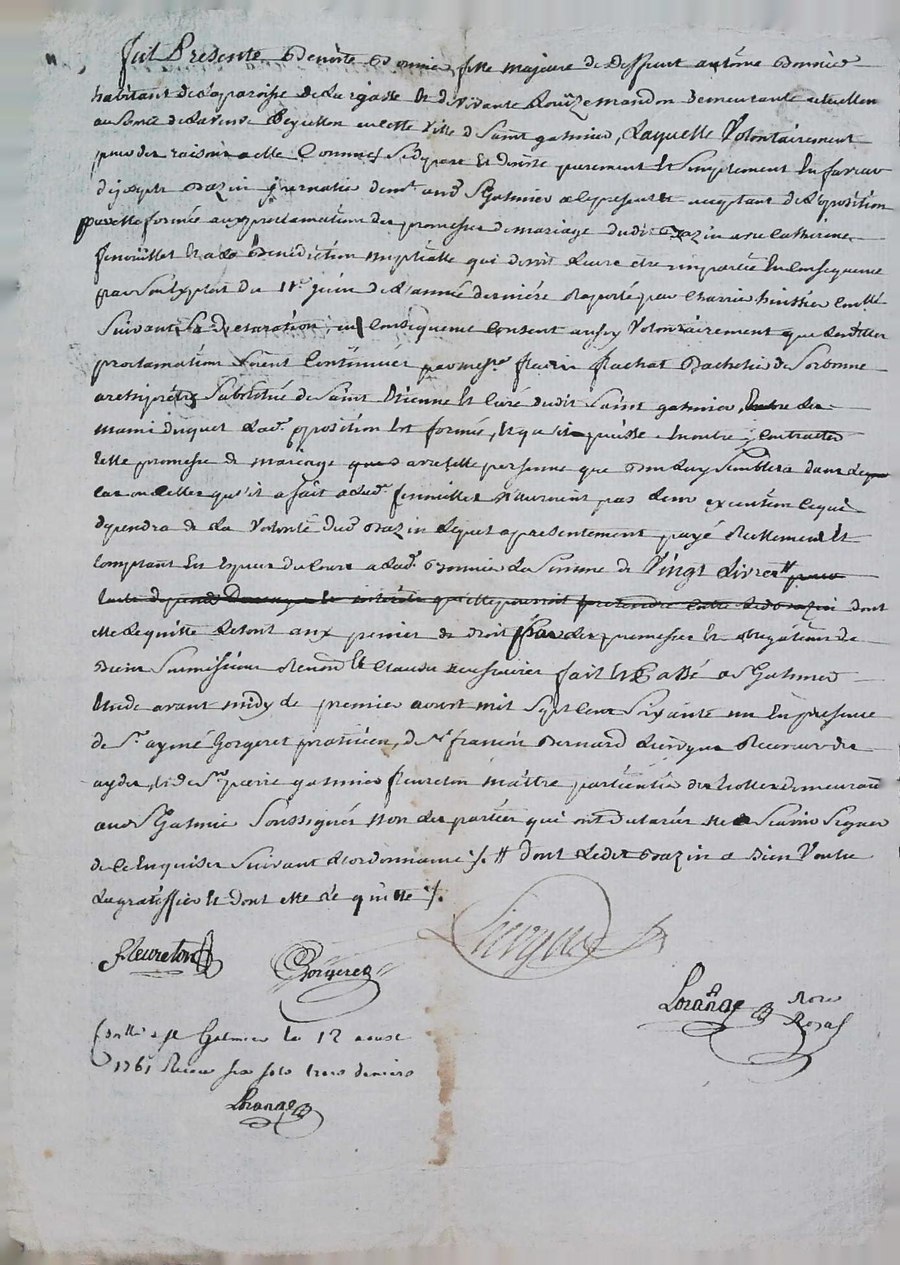 fut Presente Benoite Bonnier fille majeure de deffunt antoine Bonnier
habitant de la paroisse de Largasse et de vivante Mandon demeurante
au de la veuve Peyrellon en cette ville de Saint galmier, Laquelle Volontairement
pour des raisons a elle Connues Se depare et desiste purement et Simplement En faveur
de joseph Bazin journalier demt. aud. St Galmier a ce present et acceptant de L'oposition
par elle formée aux proclamations des promesses de mariage dudit Bazin avec Catherine
fenouillet et a la Benediction nuptialle qui devoit Leur etre impartie En Consequence
par Son Exploit du 11e juin de L'année derniere Raporté par Charrin huissier
Suivant Sa declaration, en Consequence Consent aussy Volontairement que Lesdittes
proclamations Soient Continuées par messe. flachat Bachelier de Sorbonne
archiprêtre Substitué de Saint Etienne et Curé dudit Saint galmier, Entre Les
mains duquel Lad. opposition Est formée, et qu'il puisse En outre Contracter
telle promesse de mariage avec telle personne que Bon Luy Semblera dans Le
cas ou Celles qu'il a fait a Lad. fenouillet n'auroient pas Leur execution Ce qui
dependra de La Volonté dud. Bazin Lequel a presentement payé Reellement et
Comptant En Especes du Cours a Lad. Bonnier La Somme de Vingt Livres # pour
toute depens Dommages et interets qu'elle pourroit pretendre contre Led. Bazin dont
elle Le quitte Le tout aux peines de droit par Les promesses et obligations de
Biens Soumissions Renon et Clauses necessaires fait et Passé a St Galmier
Etude avant midy Le premier aoust mil Sept Cent Soixante un En presence
de Sr. aymé Gorgeret praticien, de Mr francois Bernard Receveur des
aydes, et de Sr. pierre galmier fleureton maitre particulier des demeurant
aud St Galmier Soussignés Non Les parties qui ont declarés ne Scavoir Signer
de ce Enquises Suivant L'ordonnance ./. # dont Ledit Bazin a Bien Voulu
La gratiffier et dont elle Le quitte ./.
fleureton Gorgeret
Lorange Nore Royal
Conllé a St Galmier Le 12 aoust
1761 Recu six sols trois deniers
Lorange